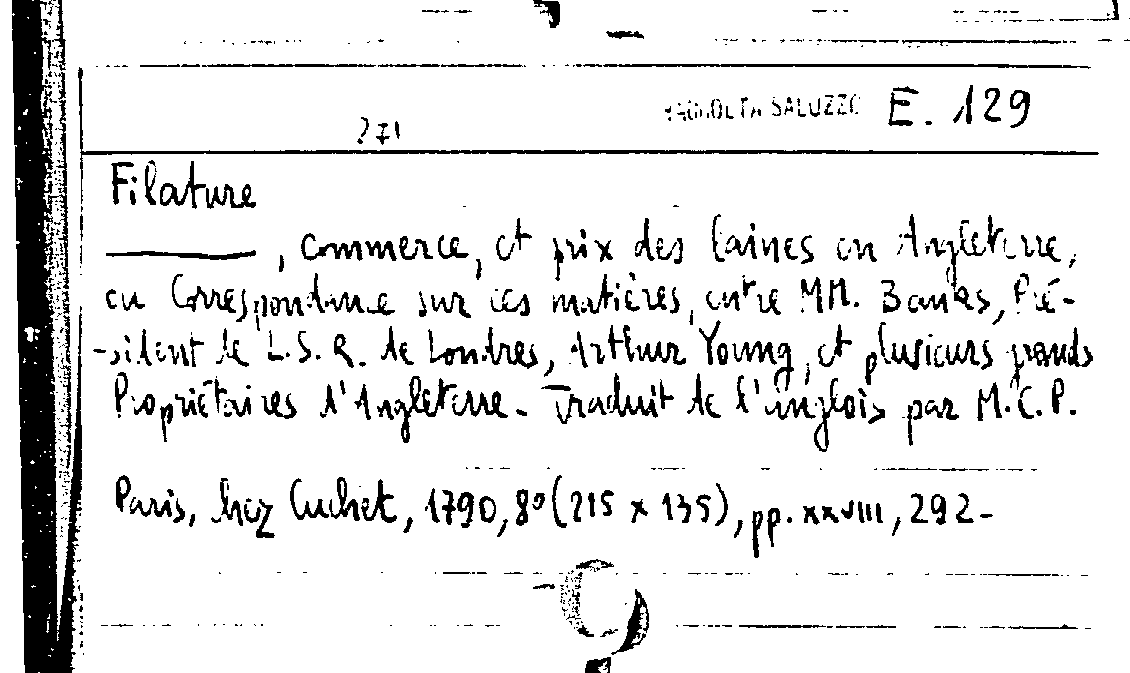 RACCOLTA SALUZZO E. 129
271
Filature
———, commerce, et prix des laines en Angleterre,
ou Correspondance sur ces matières, entre MM. Banks, Pré-
-sident de L.S.R. de Londres, Arthur Young, et plusieurs grands
Propriétaires d'Angleterre - Traduit de l'anglois par M.C.P.
Paris, chez Cuchet, 1790, 8º (215 x 135), pp. xxviii, 292-